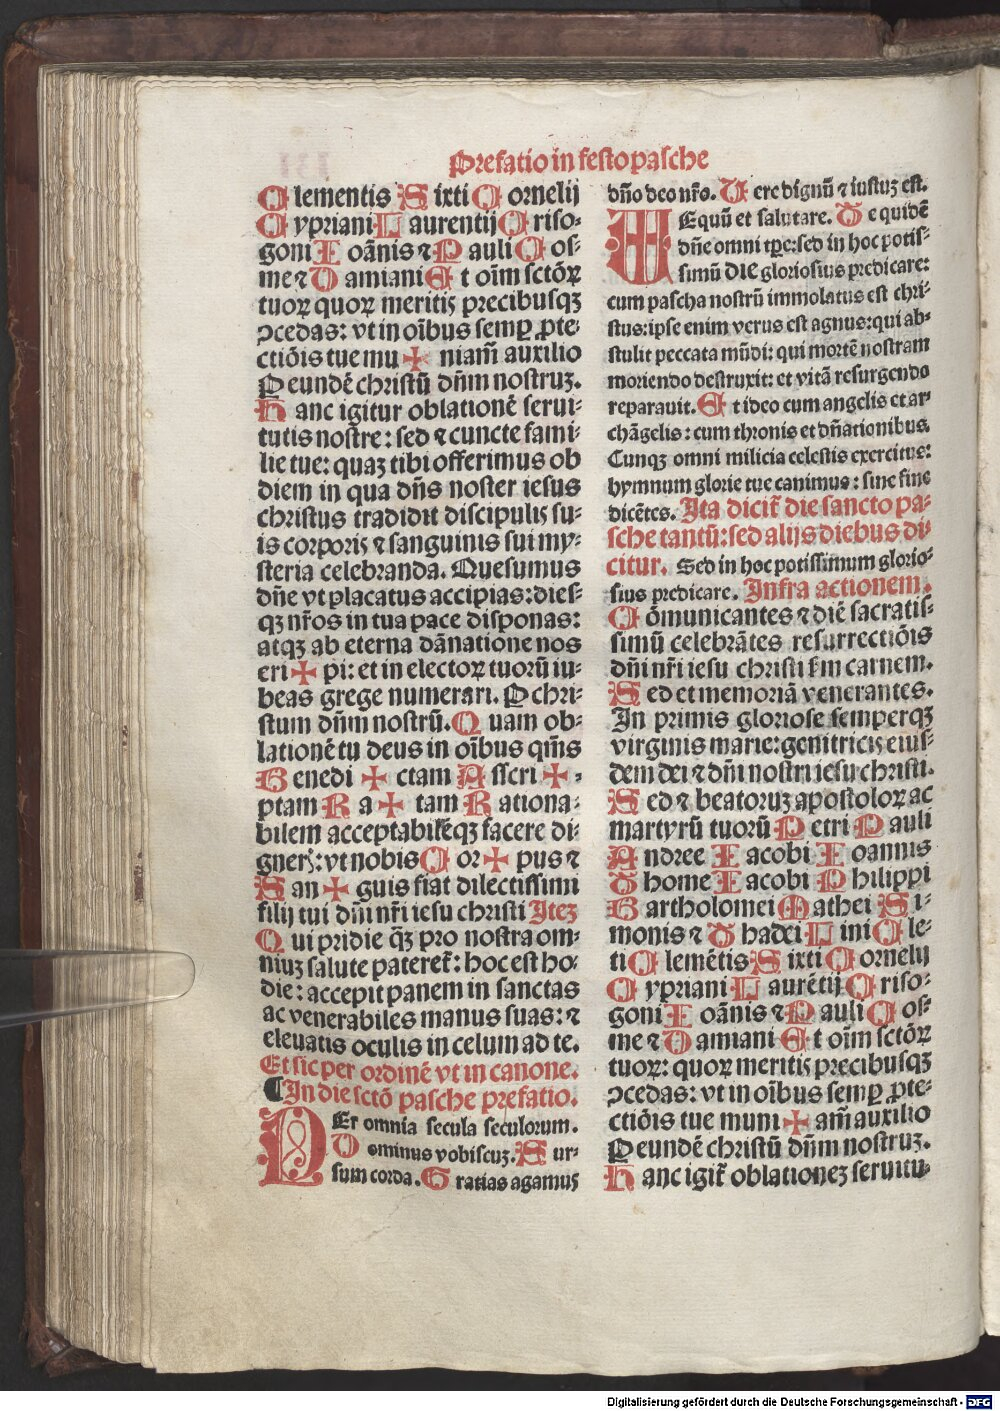 Prefatio in festo pasche
Clementis Sixti Cornelij
Cypriani Laurentij Criso⸗
goni Ioānis ⁊ Pauli Cos⸗
me ⁊ Damiani Et oīm sctōꝝ
tuoꝝ quoꝝ meritis precibusqꝫ
ꝯcedas: vt in oībus semꝑ ꝓte⸗
ctiōis tue mu ✠ niam̄ auxilio
Peundē christū dn̄m nostruꝫ.
Hanc igitur oblationē serui⸗
tutis nostre: sed ⁊ cuncte fami⸗
lie tue: quaꝫ tibi offerimus ob
diem in qua dn̄s noster iesus
christus tradidit discipulis su⸗
is corporis ⁊ sanguinis sui my⸗
steria celebranda. Quesumus
dn̄e vt placatus accipias: dies⸗
qꝫ nr̄os in tua pace disponas:
atqꝫ ab eterna dānatione nos
eri ✠ pi: et in electoꝝ tuorū iu⸗
beas grege numerari. P chri⸗
stum dn̄m nostrū. Quam ob⸗
lationē tu deus in oībus qm̄s
Benedi ✠ ctam Ascri ✠ ⸗
ptam Ra ✠ tam Rationa⸗
bilem acceptabilēqꝫ facere di⸗
gneris: vt nobis Cor ✠ pus ⁊
San ✠ guis fiat dilectissimi
filij tui dn̄i nr̄i iesu christi Iteꝫ
Qui pridie qꝫ̄ pro nostra om⸗
niuꝫ salute pateret̄: hoc est ho⸗
die: accepit panem in sanctas
ac venerabiles manus suas: ⁊
eleuatis oculis in celum ad te.
Et sic per ordinē vt in canone.
¶ In die sctō pasche prefatio.
PEr omnia secula seculorum.
Dominus vobiscuꝫ. Sur⸗
sum corda. Gratias agamus
dn̄o deo nr̄o. Vere dignū ⁊ iustuꝫ est.
VEquū et salutare. Te quidē
dn̄e omni tp̄e: sed in hoc potis⸗
simū DIE gloriosius predicare:
cum pascha nostrū immolatus est chri⸗
stus: ipse enim verus est agnus: qui ab⸗
stulit peccata mūdi: qui mortē nostram
moriendo destruxit: et vitā resurgendo
reparauit. Et ideo cum angelis et ar⸗
chāgelis: cum thronis et dn̄ationibus.
Cunqꝫ omni milicia celestis exercitus:
hymnum glorie tue canimus: sine fine
dicētes. Ita dicit̄ die sancto pa⸗
sche tantū: sed alijs diebus di⸗
citur. Sed in hoc potissimum glorio⸗
sius predicare. Infra actionem.
Cōmunicantes ⁊ diē sacratis⸗
simū celebrātes resurrectiōis
dn̄i nr̄i iesu christi km̄ carnem.
Sed et memoriā venerantes.
In primis gloriose semperqꝫ
virginis marie: genitricis eius⸗
dem dei ⁊ dn̄i nostri iesu christi.
Sed ⁊ beatoruꝫ apostoloꝝ ac
martyrū tuorū Petri Pauli
Andree Iacobi Ioannis
Thome Iacobi Philippi
Bartholomei Mathei Si⸗
monis ⁊ Thadei Lini Cle⸗
ti Clemētis Sixti Cornelij
Cypriani Laurētij Criso⸗
goni Ioānis ⁊ Pauli Cos⸗
me ⁊ Damiani Et oīm sctōꝝ
tuoꝝ: quoꝝ meritis precibusqꝫ
ꝯcedas: vt in oībus semꝑ ꝓte⸗
ctiōis tue muni ✠ am̄ auxilio
Peundē christū dn̄m nostruꝫ.
Hanc igit̄ oblationeꝫ seruitu⸗
Digitalisierung gefördert durch die Deutsche Forschungsgemeinschaft - DFG